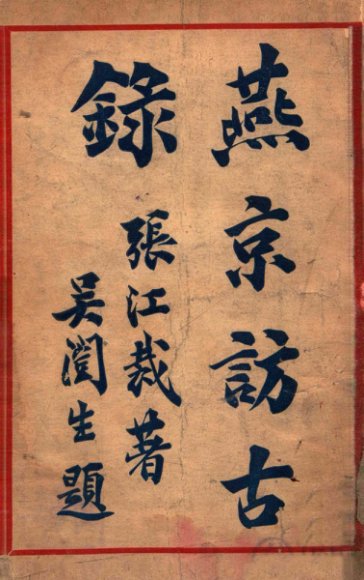 燕京訪古
錄
張江裁著
吳闓生題